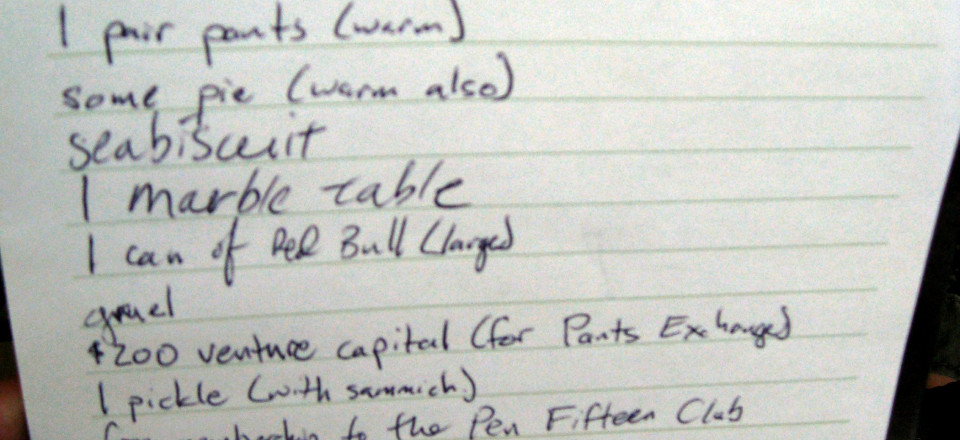 1 pair pants (warm)
some pie (warm also)
seabiscuit
1 marble table
1 can of Red Bull (large)
gruel
$200 venture capital (for Pants Exchange)
1 pickle (with sammich)
membership to the Pen Fifteen Club